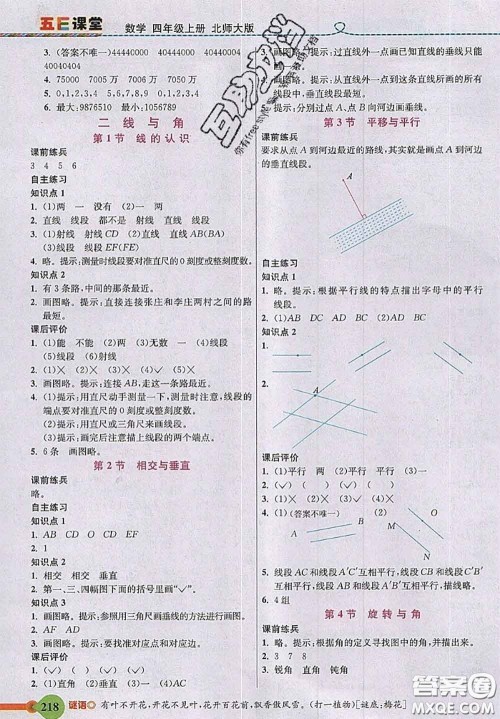 五E课堂
数学 四年级上册 北师大版
3. (答案不唯一)44440000 44404000 44400400
40040404
4. 75000 7005万 7050万 7500万
5. 0,1,2,3,4 5,6,7,8,9
6. 最大:9876510 最小:1056789
二 线与角
第1节 线的认识
课前练兵
3 4 5 6
自主练习
知识点1
1. (1)两 一 没有 (2)一 无
2. 直线 线段 都不是 线段 射线
3. (1)射线 射线CD (2)直线 直线AB(BA)
(3)线段 线段EF(FE)
4. 略。提示:测量时线段要对准直尺的0刻度或整刻度。
知识点2
1. 有3条路,中间的那条最近。
2. 画图略。提示:直接连接张庄和李庄两村之间的路
最短。
课后评价
1. (1)能 不能 (2)两 (3)无数 (4)一
(5)线段 (6)射线
2. (1)✓ (2)✕ (3)✕ (4)✓ (5)✕
3. 画图略。提示:连接AB,走这一条路最近。
4. (1)提示:用直尺动手测量一下,测量时,线段的
端点要对准直尺的0刻度或整刻度。
(2)提示:用直尺或三角尺来画线段。
(3)提示:画完后注意描上线段的两个端点。
5. 6条 画图略。
第2节 相交与垂直
课前练兵
略。
自主练习
知识点1
1. AB CD O AB CD O
2. 1
知识点2
1. 相交 相交 垂直
2. 第一、三、四幅图下面的括号里画“✓”。
知识点3
1. 画图略。提示:参照用三角尺画垂线的方法进行画图。
2. AF AD
3. 画图略。提示:要找准对应点和对应边。
课后评价
1. (1)直角 垂线 垂足 (2)0
2. (1)✕ (2)✕ (3)✓ (4)✕
3. 画图略。提示:过直线外一点画已知直线的垂线只能
4. 画图略。提示:从直线外一点到这条直线所画的所有
线段中,垂直线段最短。
5. 提示:分别过点A、点B向直线画垂线。
第3节 平移与平行
课前练兵
要求从点A到河边最近的路线,其实就是画点A到河边
的垂直线段。
A
自主练习
知识点1
1. 略。提示:根据平行线的特点描出字母中的平行
线段。
2. (1)AB DC AD BC (2)DC AB
知识点2
1.
2.
A
课后评价
1. (1)平行 两 (2)平行 一
2. (1)✕ (2)✕ (3)✕ (4)✕
3. (✓) ( ) (✓) (✓)
4. (1)(答案不唯一)
(2)
5. 线段AC和线段A′C′互相平行,线段AB和线段
A′B′互相平行,线段BC和线段B′C′互相平行。
6. 4组
第4节 旋转与角
课前练兵
1. 画图略。提示:根据角的定义寻找图上的角。
2. 3 7 8
3. 锐角 直角 钝角
218
谜语
有叶不开花,开花不见叶,花开百花前,飘香傲风雪。(打一植物)[谜底:梅花]
答案圈
MXQE.COM